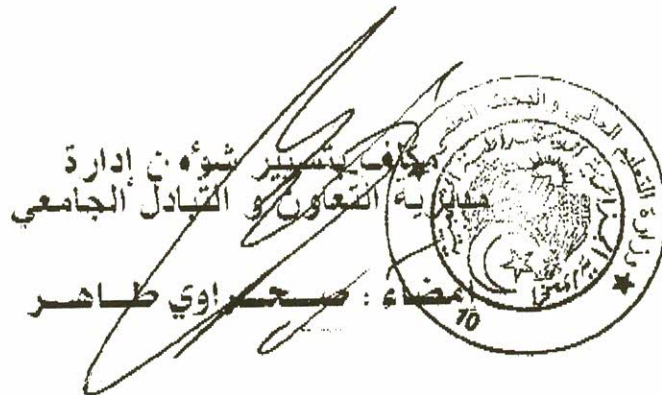 مكلف بتسيير شوءون إدارة
مديرية التعاون و التبادل الجامعي
إمضاء : صحراوي طاهر
وزارة التعليم العالي والبحث العلمي
10